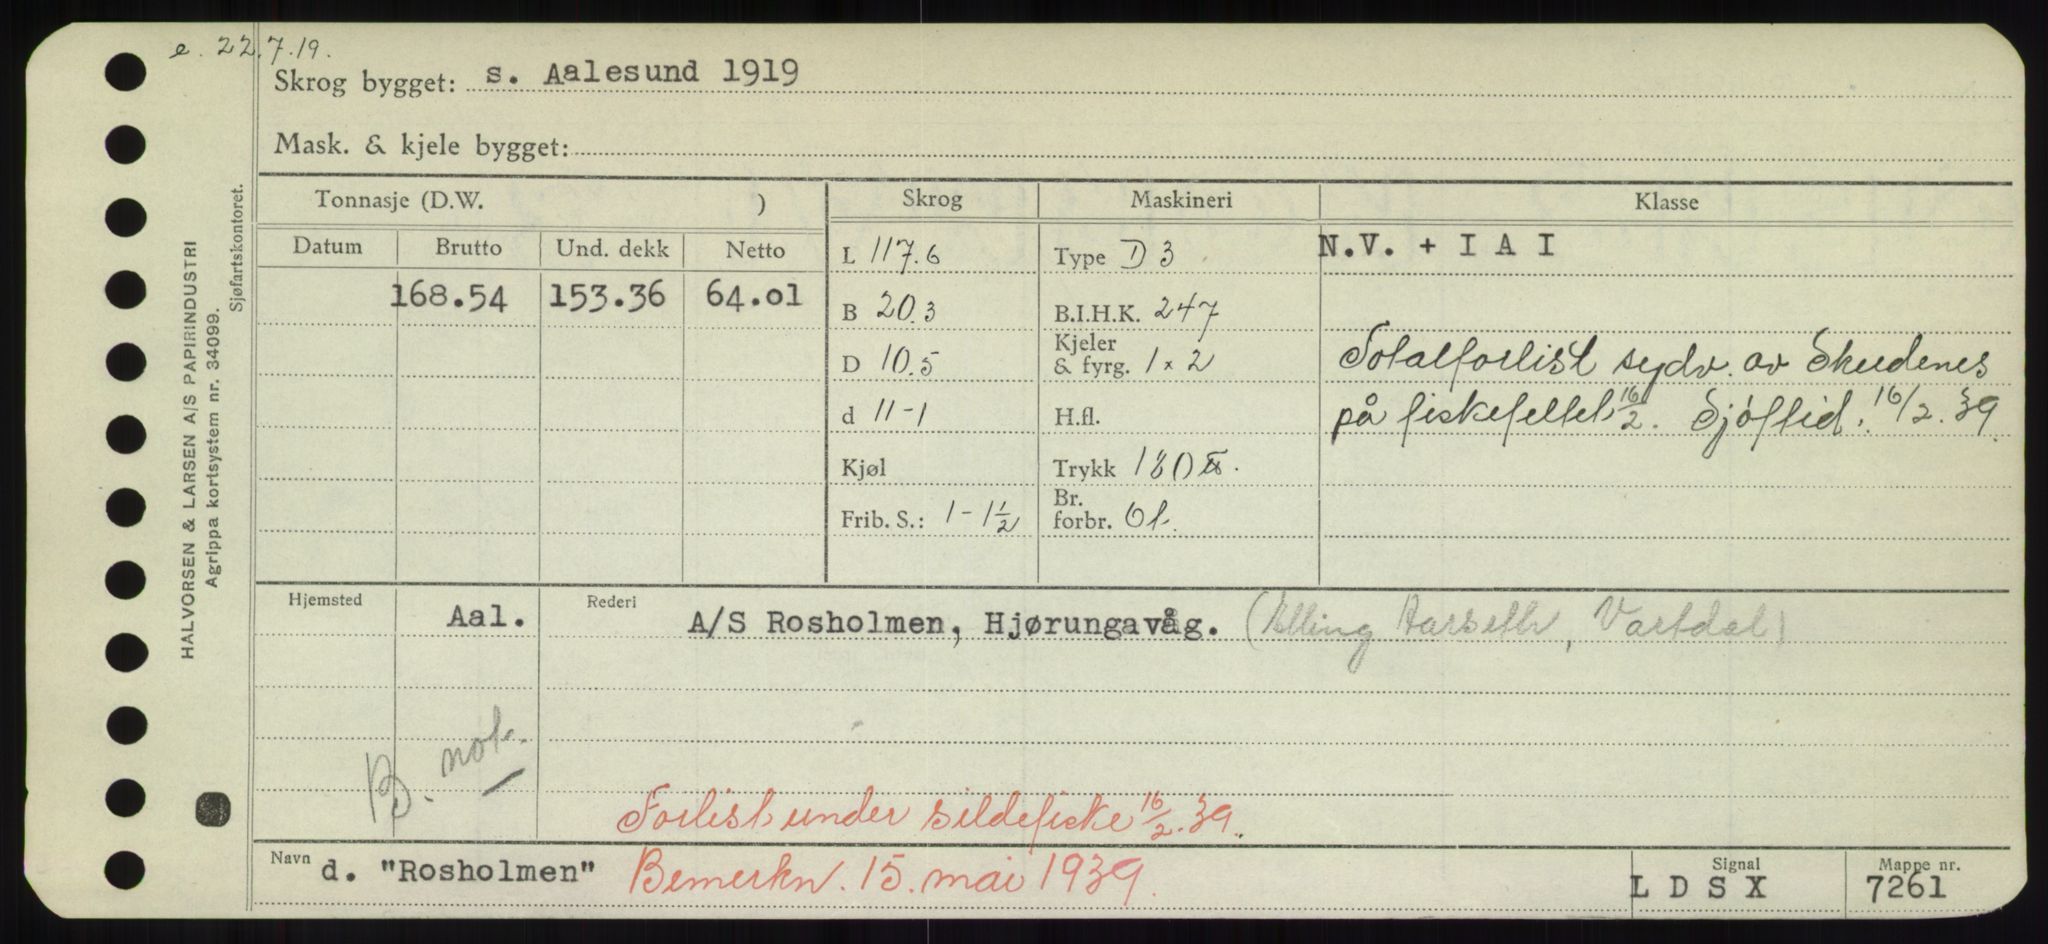 e. 22.7.19.
Skrog bygget: s. Aalesund 1919
Mask. & kjele bygget:
Tonnasje (D.W. ) Skrog Maskineri Klasse
Datum Brutto Und. dekk Netto L 117.6 Type D 3 N.V. + I A I
168.54 153.36 64.01 B 20.3 B.I.H.K. 247
D 10.5 Kjeler & fyrg. 1 x 2 Totalforlist sydv. av Skudenes
d 11-1 H.fl. på fiskefeltet 16/2. Sjöftid. 16/2.39.
Kjøl Trykk 180
Frib. S.: 1-1½ Br. forbr. Ol.
Hjemsted Aal. Rederi A/S Rosholmen, Hjørungavåg. (Elling Aarseth, Vartdal)
B. not.
Forlist under sildefiske 16/2.39.
Navn d. "Rosholmen" Bemerkn. 15. mai 1939. Signal L D S X Mappe nr. 7261
HALVORSEN & LARSEN A/S PAPIRINDUSTRI
Agrippa kortsystem nr. 34099.
Sjøfartskontoret.